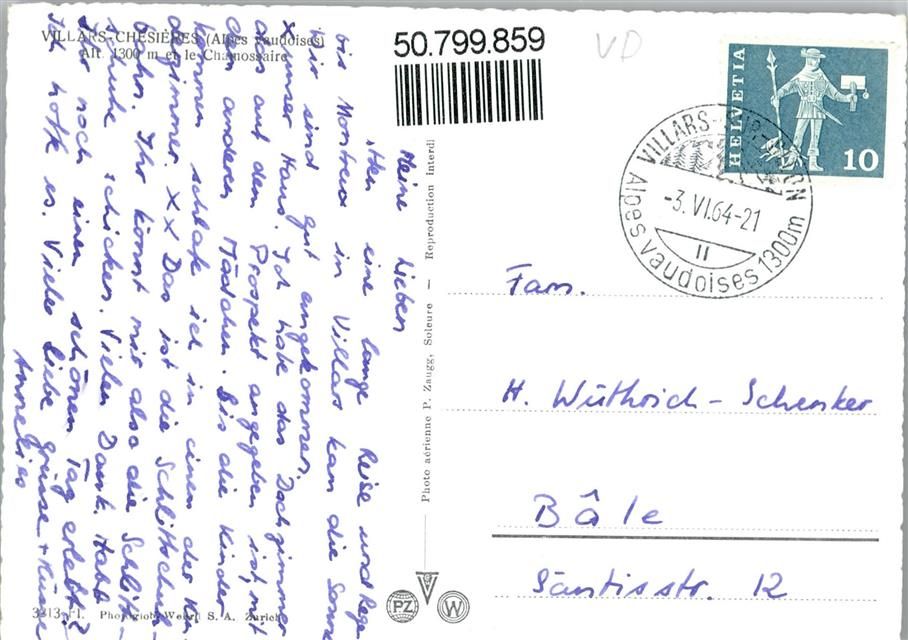 VILLARS-CHESIÈRES (Alpes vaudoises)
Alt. 1300 m et le Chamossaire
50.799.859
VD
HELVETIA
10
VILLARS-SUR-OLLON
-3.VI.64-21
II
Alpes vaudoises 1300m
Meine Lieben
eine lange Reise und Regen
bis Montreux in Villars kam die Sonne
Wir sind gut angekommen.
X unser Haus. Ich habe das Dachzimmer
das auf dem Prospekt angegeben ist, mit
den anderen Mädchen. Bis die Kinder
kommen schlafe ich in einem der Kin-
derzimmer. XX Das ist die Schlittschuh-
bahn. Ihr könnt mir also die Schlitt-
schuhe schicken. Vielen Dank. Habt
Ihr noch einen schönen Tag erlebt?
Ich hoffe es. Viele liebe Grüsse + Küsse
Annelies
Photo aérienne P. Zaugg, Soleure — Reproduction interdite
Fam.
H. Wüthrich-Schenker
Bâle
Säntisstr. 12
PZ
W
3313-H. Photoglob-Wehrli S. A. Zürich